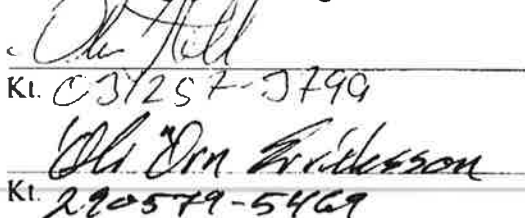 Kt. 031257-3799
Óli Örn Eiríksson
Kt. 290579-5469